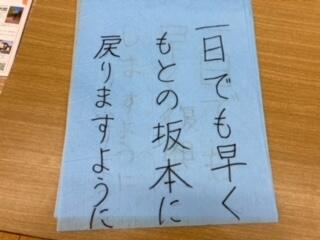 一日でも早く
もとの坂本に
戻りますように